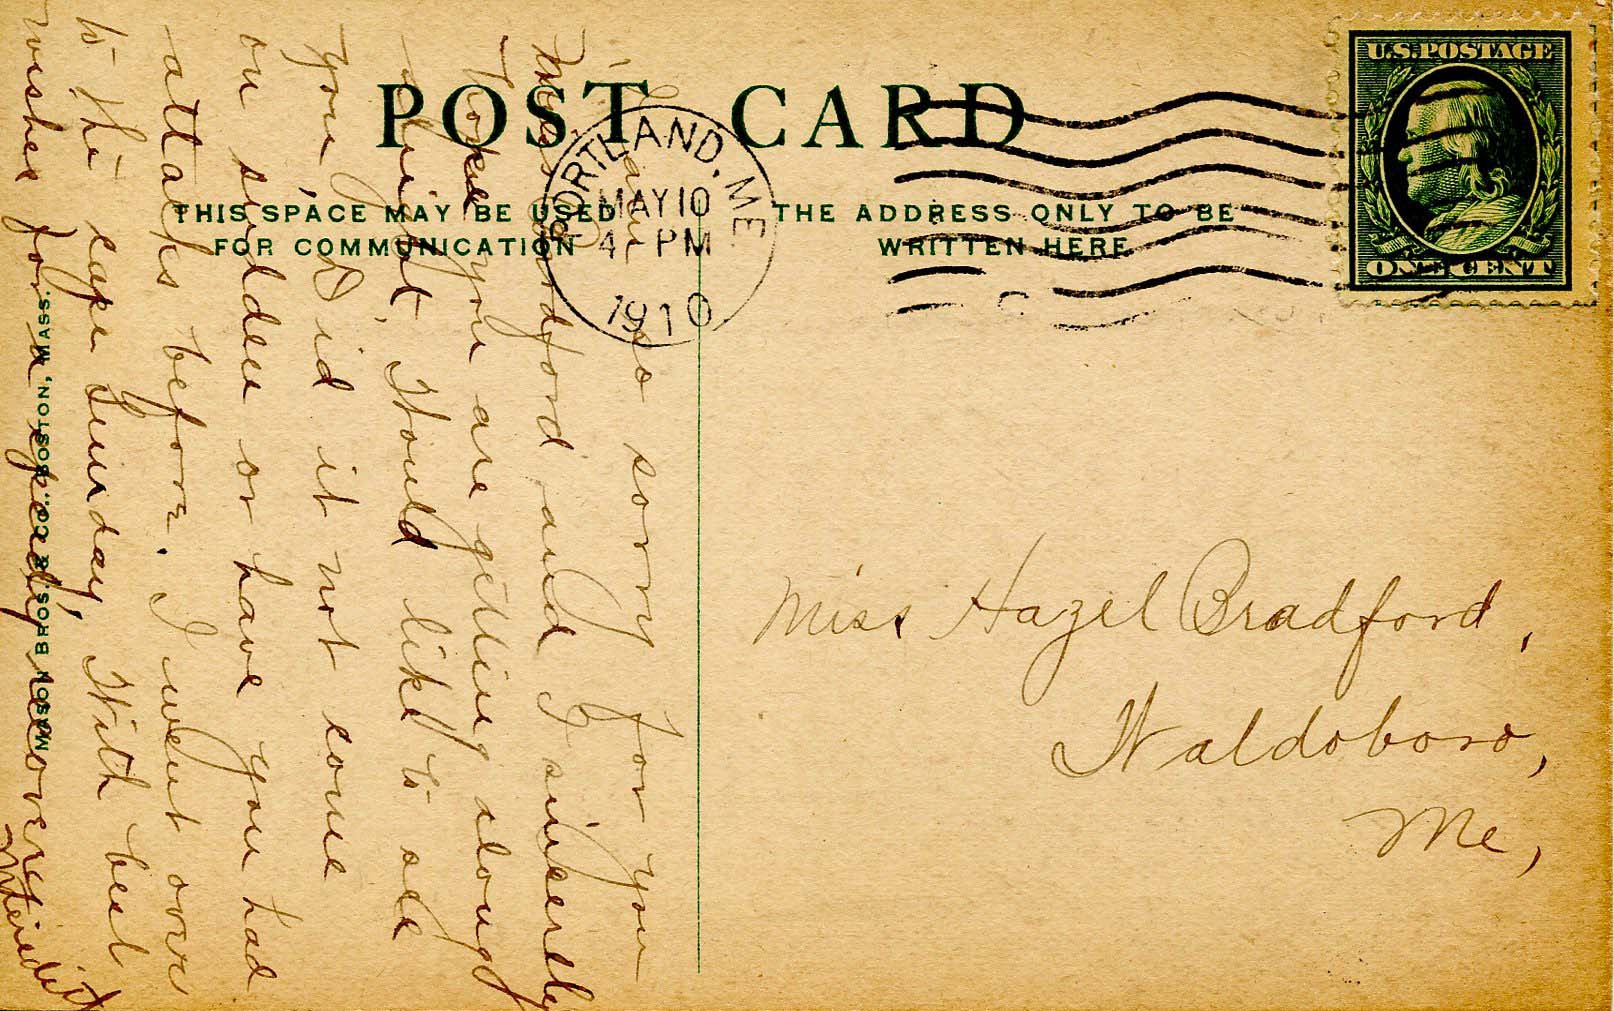 POST CARD
THIS SPACE MAY BE USED
FOR COMMUNICATION
THE ADDRESS ONLY TO BE
WRITTEN HERE
U.S. POSTAGE
ONE CENT
PORTLAND, ME.
MAY 10
4 - PM
1910
Miss Hazel Bradford,
Waldoboro,
Me,
I am so sorry for you
Miss Bradford and I sincerely
hope you are getting along
alright. Would like to see
you. Did it not come
on sudden or have you had
attacks before. I went over
to the cape Sunday. With best
wishes for a speedy recovery
Meredith
MASON BROS. & CO., BOSTON, MASS.